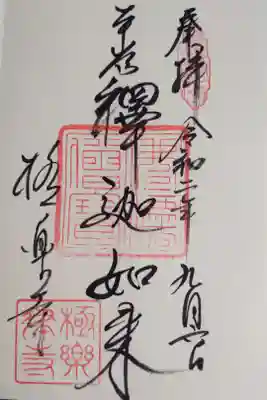 奉拝 令和二年 九月六日
本尊 釋迦如来
極楽寺
極樂
律寺